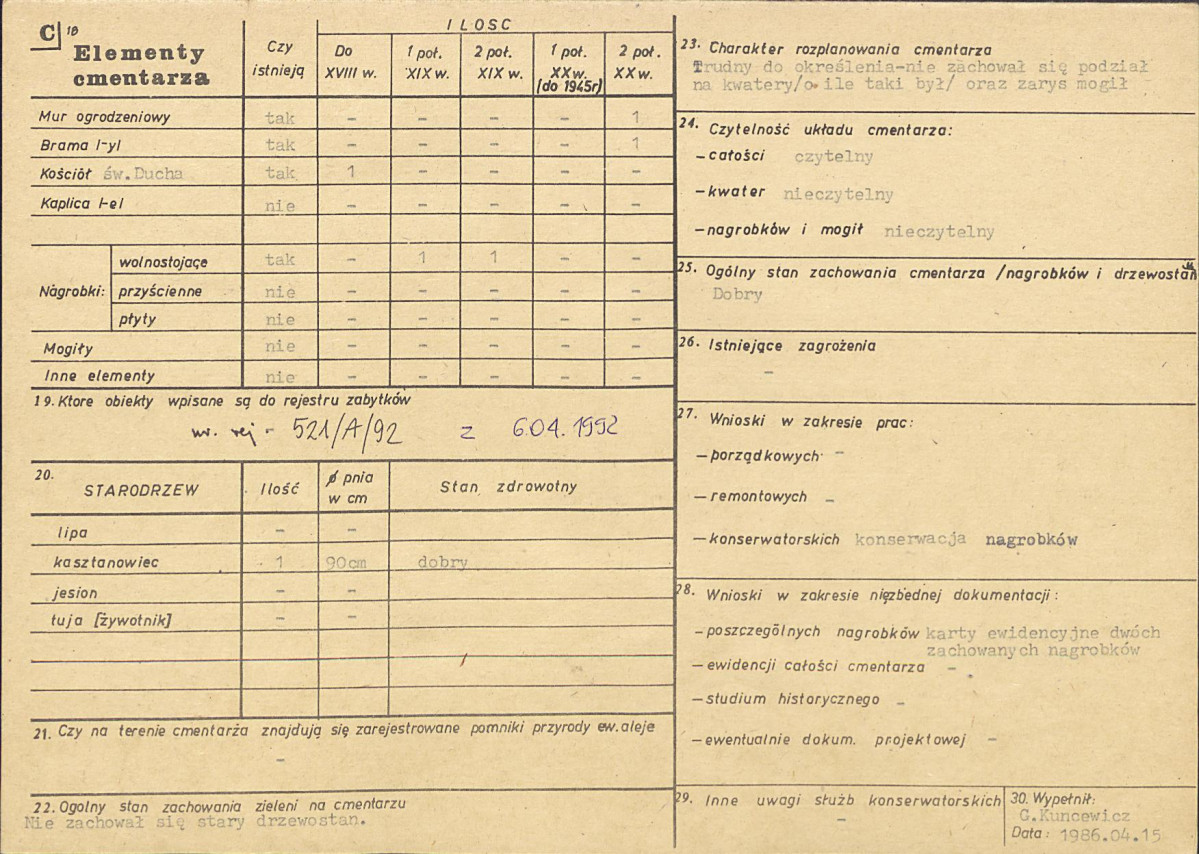 C 18 Elementy cmentarza
Czy istnieją
ILOSC
Do XVIII w.
1 poł. XIX w.
2 poł. XIX w.
1 poł. XX w. [do 1945r]
2 poł. XX w.
Mur ogrodzeniowy tak - - - - 1
Brama /-y/ tak - - - - 1
Kościół św.Ducha tak 1 - - - -
Kaplica /-e/ nie - - - - -
Nagrobki: wolnostojące tak - 1 1 - -
przyścienne nie - - - - -
płyty nie - - - - -
Mogiły nie - - - - -
Inne elementy nie - - - - -
19. Ktore obiekty wpisane są do rejestru zabytków
nr. rej - 521/A/92 z 6.04.1992
20. STARODRZEW Ilość ø pnia w cm Stan zdrowotny
lipa - -
kasztanowiec 1 90cm dobry
jesion - -
tuja [żywotnik] - -
21. Czy na terenie cmentarża znajdują się zarejestrowane pomniki przyrody ew. aleje
-
22. Ogolny stan zachowania zieleni na cmentarzu
Nie zachował się stary drzewostan.
23. Charakter rozplanowania cmentarza
Trudny do określenia-nie zachował się podział
na kwatery/o ile taki był/ oraz zarys mogił
24. Czytelność układu cmentarza:
-całości czytelny
-kwater nieczytelny
-nagrobków i mogił nieczytelny
25. Ogólny stan zachowania cmentarza /nagrobków i drzewostan
Dobry
26. Istniejące zagrożenia
-
27. Wnioski w zakresie prac:
-porządkowych -
-remontowych -
-konserwatorskich konserwacja nagrobków
28. Wnioski w zakresie niezbednej dokumentacji:
-poszczególnych nagrobków karty ewidencyjne dwóch
zachowanych nagrobków
-ewidencji całości cmentarza -
-studium historycznego -
-ewentualnie dokum. projektowej -
29. Inne uwagi służb konserwatorskich
-
30. Wypełnił:
G.Kuncewicz
Data: 1986.04.15